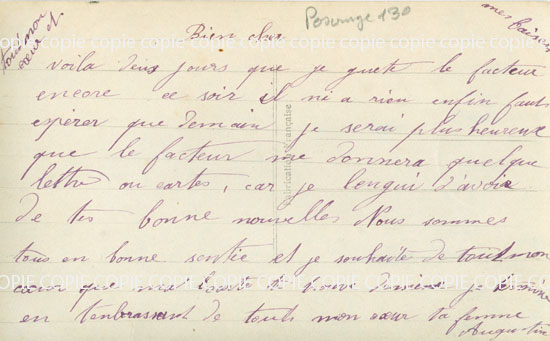 Bien cher
Personnage 130
mes baisers
tout mon
cœur et
voila deux jours que je guette le facteur
encore ce soir il ni a rien enfin faut
espérer que demain je serai plus heureux
que le facteur me donnera quelque
lettre ou cartes, car je lengui d'avoir
de tes bonne nouvelles Nous sommes
tous en bonne sentie et je souhaite de tout mon
cœur que ma de pour je
en tenbrassant de touts mon cœur ta femme
Augustine
Fabrication Française
COPIE COPIE COPIE COPIE COPIE COPIE COPIE